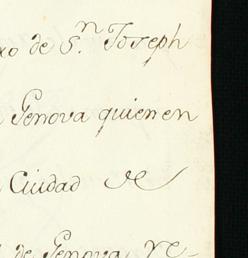 xo de S.n Joseph
Genova quien en
Ciudad de
de Genova, re-